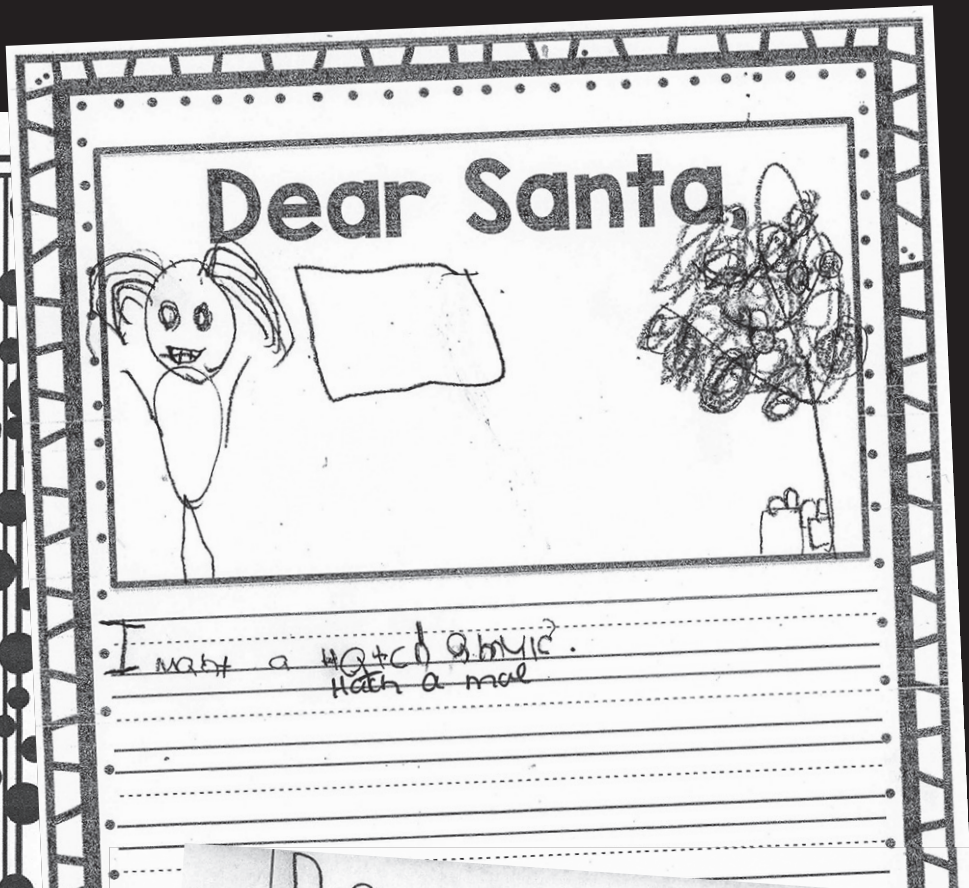 Dear Santa,
I want a Hatch
Hach a mal